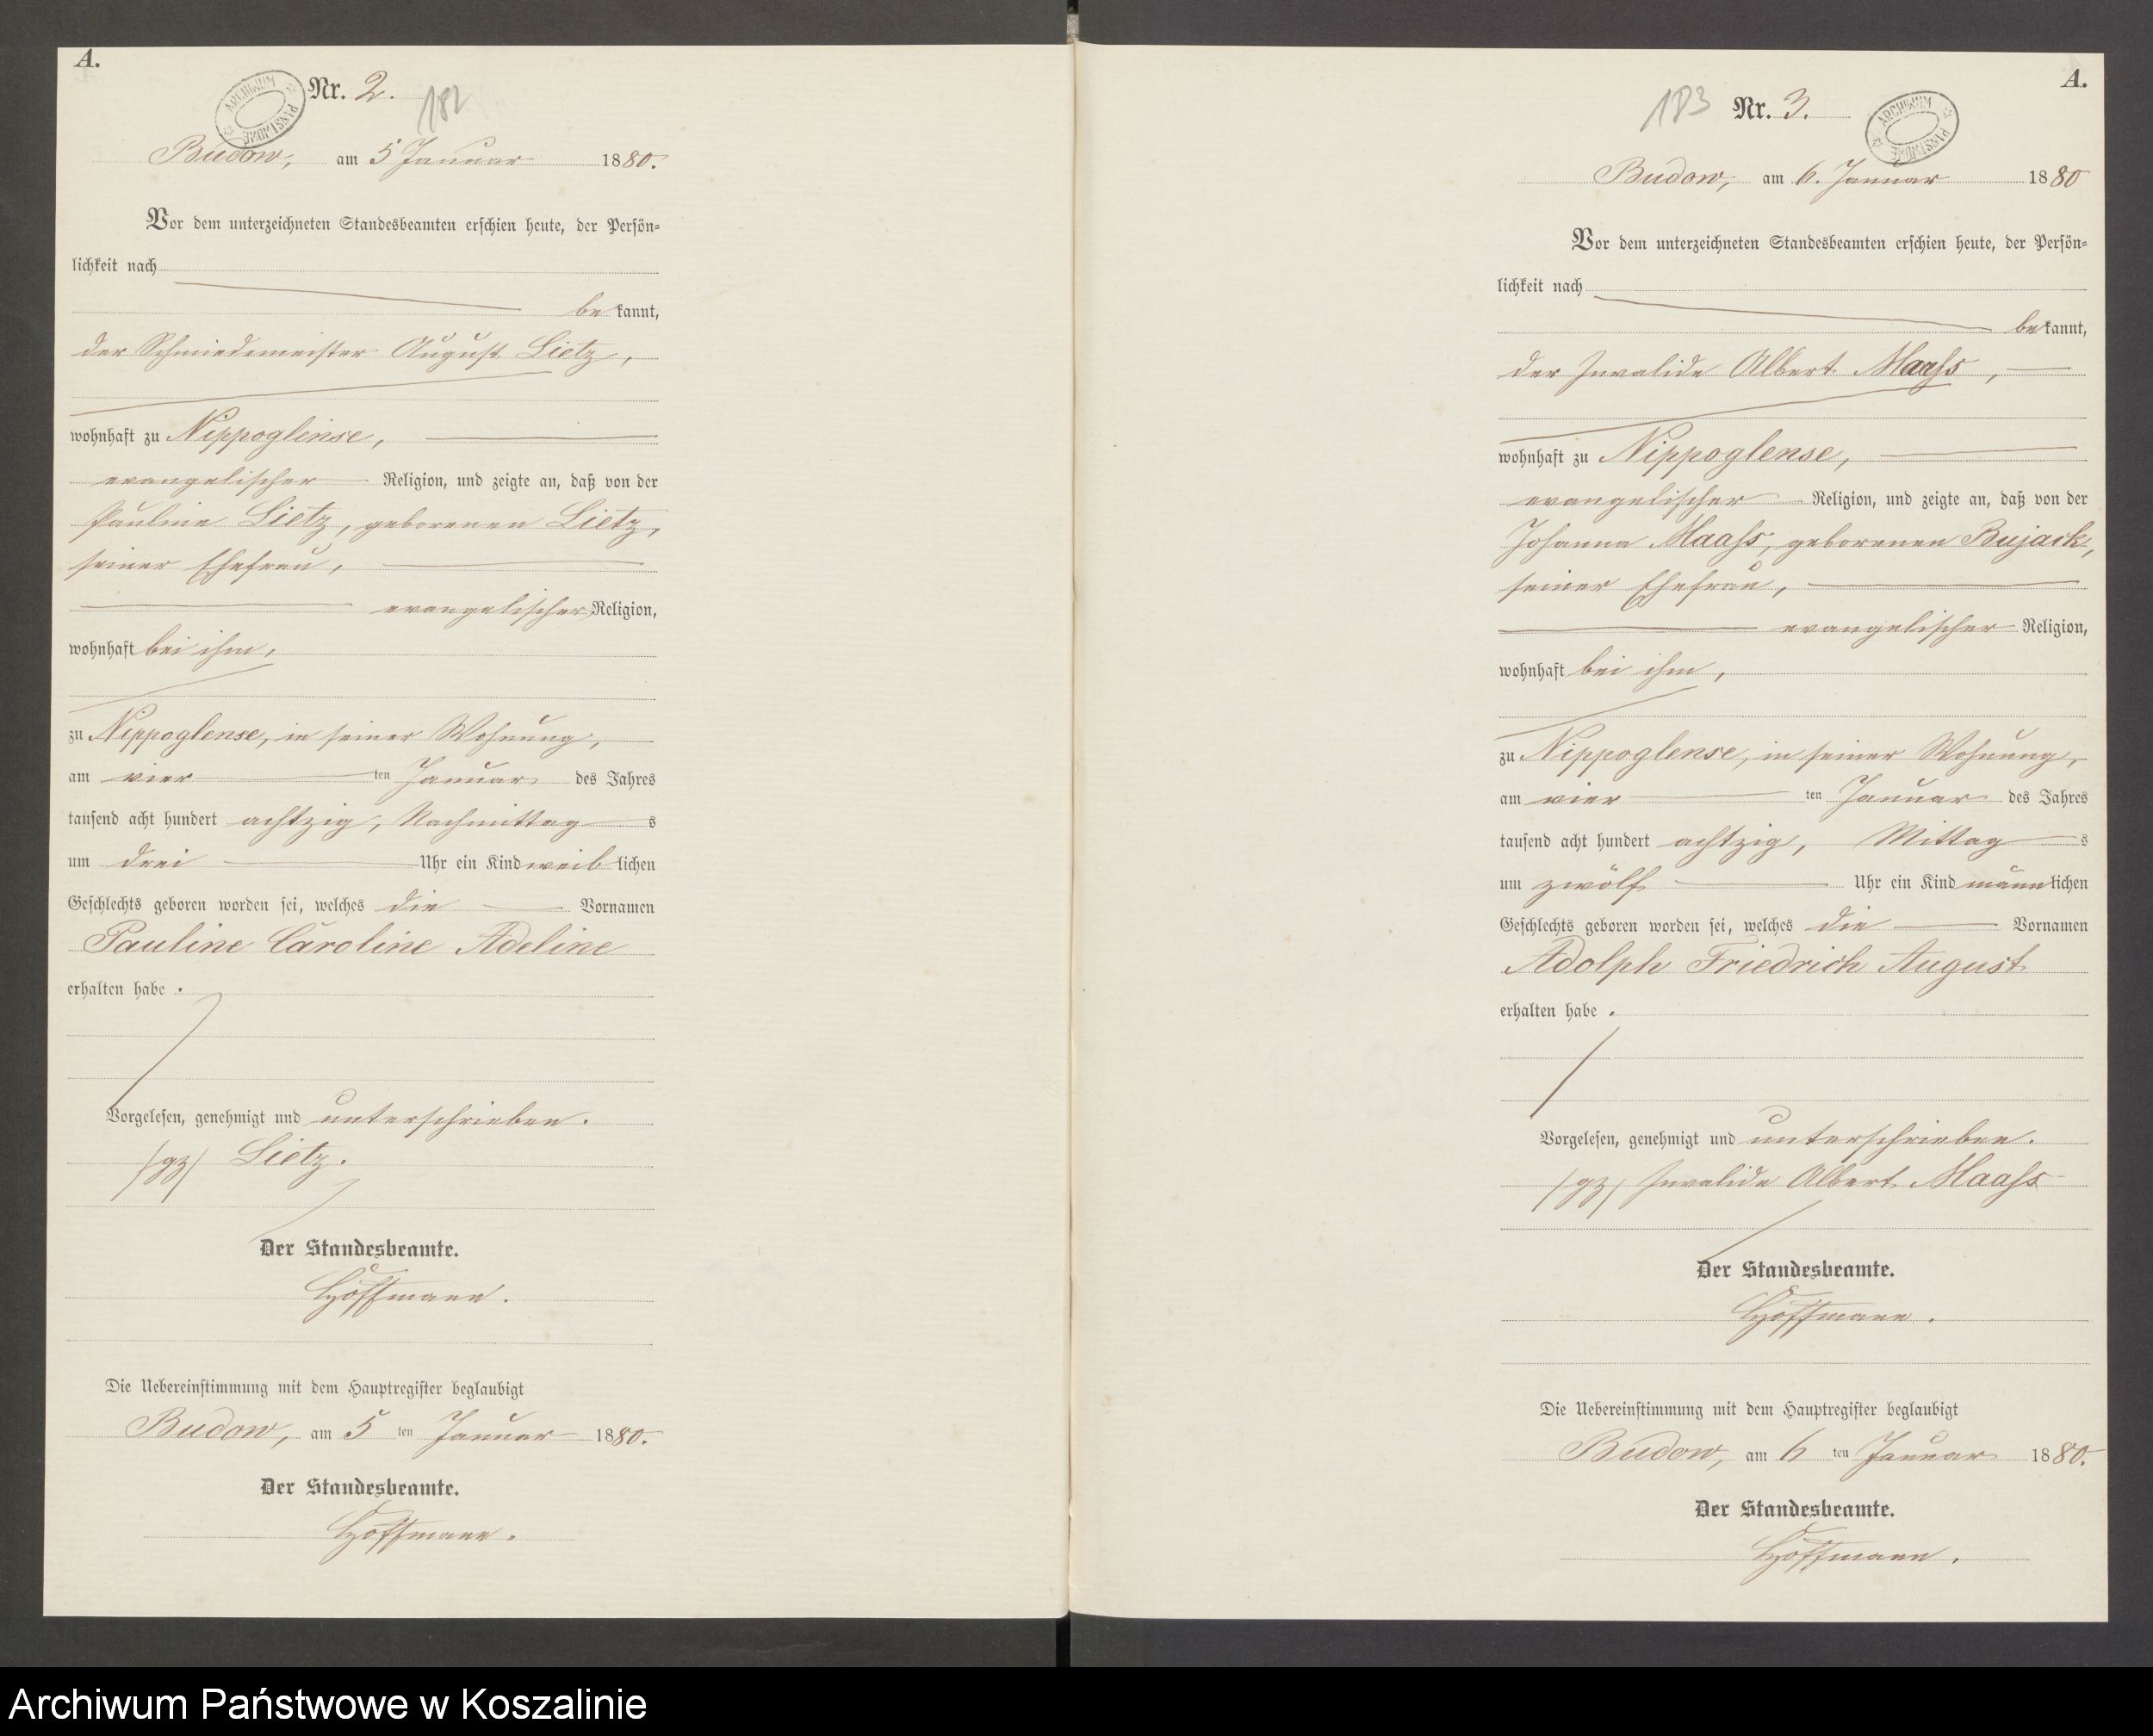 A.
ARCHIWUM PAŃSTWOWE
Nr. 2.
182
Budow, am 5 Januar 1880.
Vor dem unterzeichneten Standesbeamten erschien heute, der Persön=
lichkeit nach
be kannt,
der Schmiedemeister August Lietz,
wohnhaft zu Nippoglense,
evangelischer Religion, und zeigte an, daß von der
Pauline Lietz, geborenen Lietz,
seiner Ehefrau,
evangelischer Religion,
wohnhaft bei ihm,
zu Nippoglense, in seiner Wohnung,
am vier ten Januar des Jahres
tausend acht hundert achtzig, Nachmittag s
um drei Uhr ein Kind weib lichen
Geschlechts geboren worden sei, welches die Vornamen
Pauline Caroline Adeline
erhalten habe .
Vorgelesen, genehmigt und unterschrieben.
/gz/ Lietz.
Der Standesbeamte.
Hoffmann.
Die Uebereinstimmung mit dem Hauptregister beglaubigt
Budow, am 5 ten Januar 1880.
Der Standesbeamte.
Hoffmann.
A.
183
Nr. 3.
ARCHIWUM PAŃSTWOWE
Budow, am 6. Januar 1880
Vor dem unterzeichneten Standesbeamten erschien heute, der Persön=
lichkeit nach
be kannt,
der Invalide Albert Maaſs,
wohnhaft zu Nippoglense,
evangelischer Religion, und zeigte an, daß von der
Johanna Maaſs, geborenen Bujack,
seiner Ehefrau,
evangelischer Religion,
wohnhaft bei ihm,
zu Nippoglense, in seiner Wohnung,
am vier ten Januar des Jahres
tausend acht hundert achtzig, Mittag s
um zwölf Uhr ein Kind männ lichen
Geschlechts geboren worden sei, welches die Vornamen
Adolph Friedrich August
erhalten habe .
Vorgelesen, genehmigt und unterschrieben.
/gz/ Invalide Albert Maaſs
Der Standesbeamte.
Hoffmann.
Die Uebereinstimmung mit dem Hauptregister beglaubigt
Budow, am 6 ten Januar 1880.
Der Standesbeamte.
Hoffmann.
Archiwum Państwowe w Koszalinie